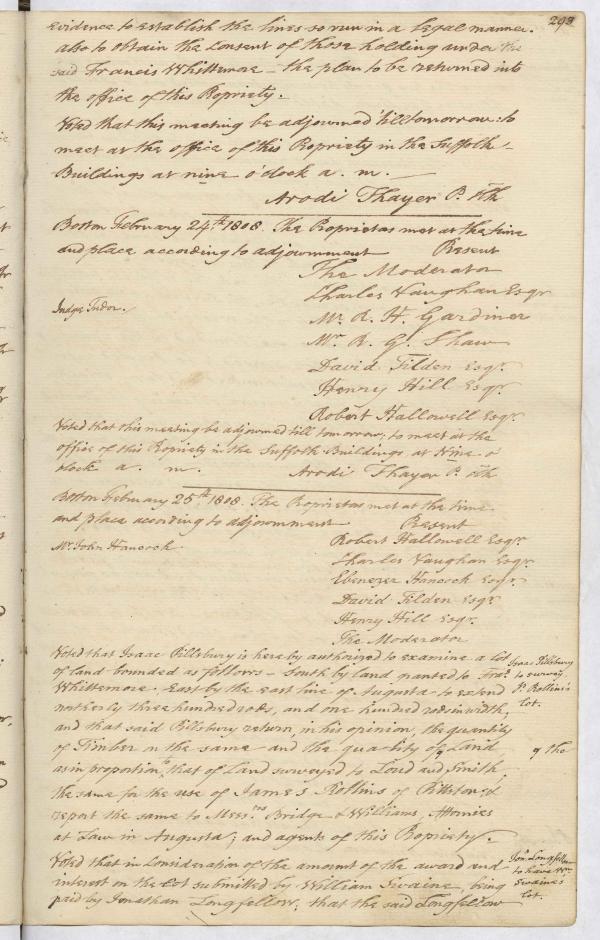 293
evidence to establish the lines so run in a legal manner.
also to obtain the Consent of those holding under the
said Francis Whittemore – the plan to be returned into
the office of this Propriety.
Voted that this meeting be adjourned 'till tomorrow: to
meet at the office of this Propriety in the Suffolk
Buildings at nine o'clock a. m. —
Arodi Thayer P. Clk
Boston February 24th 1808. The Proprietors met at the time
and place according to adjournment Present
The Moderator
Charles Vaughan Esqr
Judge Tudor.
Mr. R. H. Gardiner
Mr. R. G. Shaw
David Tilden Esqr.
Henry Hill Esqr.
Robert Hallowell Esqr.
Voted that this meeting be adjourned till tomorrow; to meet at the
office of this Propriety in the Suffolk Buildings at Nine o'
clock a. m. Arodi Thayer P. Clk
Boston February 25th 1808. The Proprietors met at the time
and place according to adjournment Present
Mr. John Hancock.
Robert Hallowell Esqr.
Charles Vaughan Esqr.
Ebenezer Hancock Esqr.
David Tilden Esqr.
Henry Hill Esqr.
The Moderator
Voted that Isaac Pillsbury is here by authorized to examine a Lot
of land bounded as follows – South by land granted to Fras
Whittemore. East by the east line of Augusta to extend
northerly three hundred rods, and one hundred rods in width;
and that said Pillsbury return, in his opinion, the quantity
of Timber on the same and the quality of Land
as in proportion to that of Land surveyed to Loud and Smith,
the same for the use of James Rollins of Pittston, &
report the same to Messrs Bridge & Williams, Attornies
at Law in Augusta; and agents of this Propriety.
Isaac Pillsbury
to survey
Js Rollins's
Lot.
q the
Voted that in Consideration of the amount of the award and
interest on the Lot submitted by William Swaine, being
paid by Jonathan Longfellow; that the said Longfellow
Jon. Longfellow
to have Wm
Swaine's
Lot.